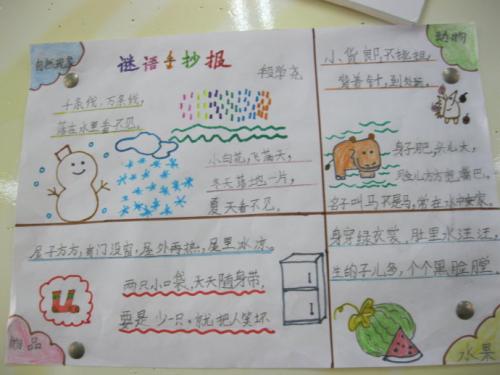 自然现象
谜语手抄报
千条线,万条线,
落在水里看不见。
小白花,飞满天,
冬天落地一片,
夏天看不见。
动物
小货郎,不挑担,
背着针,到处
身子肥,头儿大,
脸儿方方宽嘴巴,
名子叫马不是马,常在水中
屋子方方,有门没窗,屋外再热,屋里冰凉。
两只小口袋,天天随身带,
要是少一只,就把人笑坏
品
身穿绿衣裳,肚里水汪汪,
生的子儿多,个个黑脸膛
水果